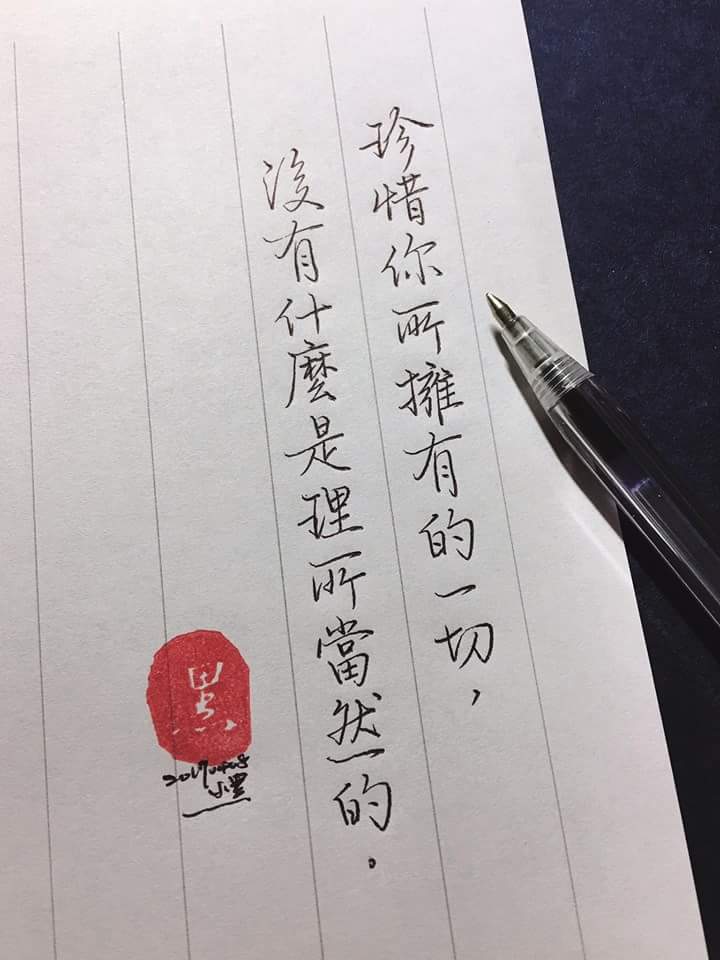 珍惜你所擁有的一切，
沒有什麼是理所當然的。
黑